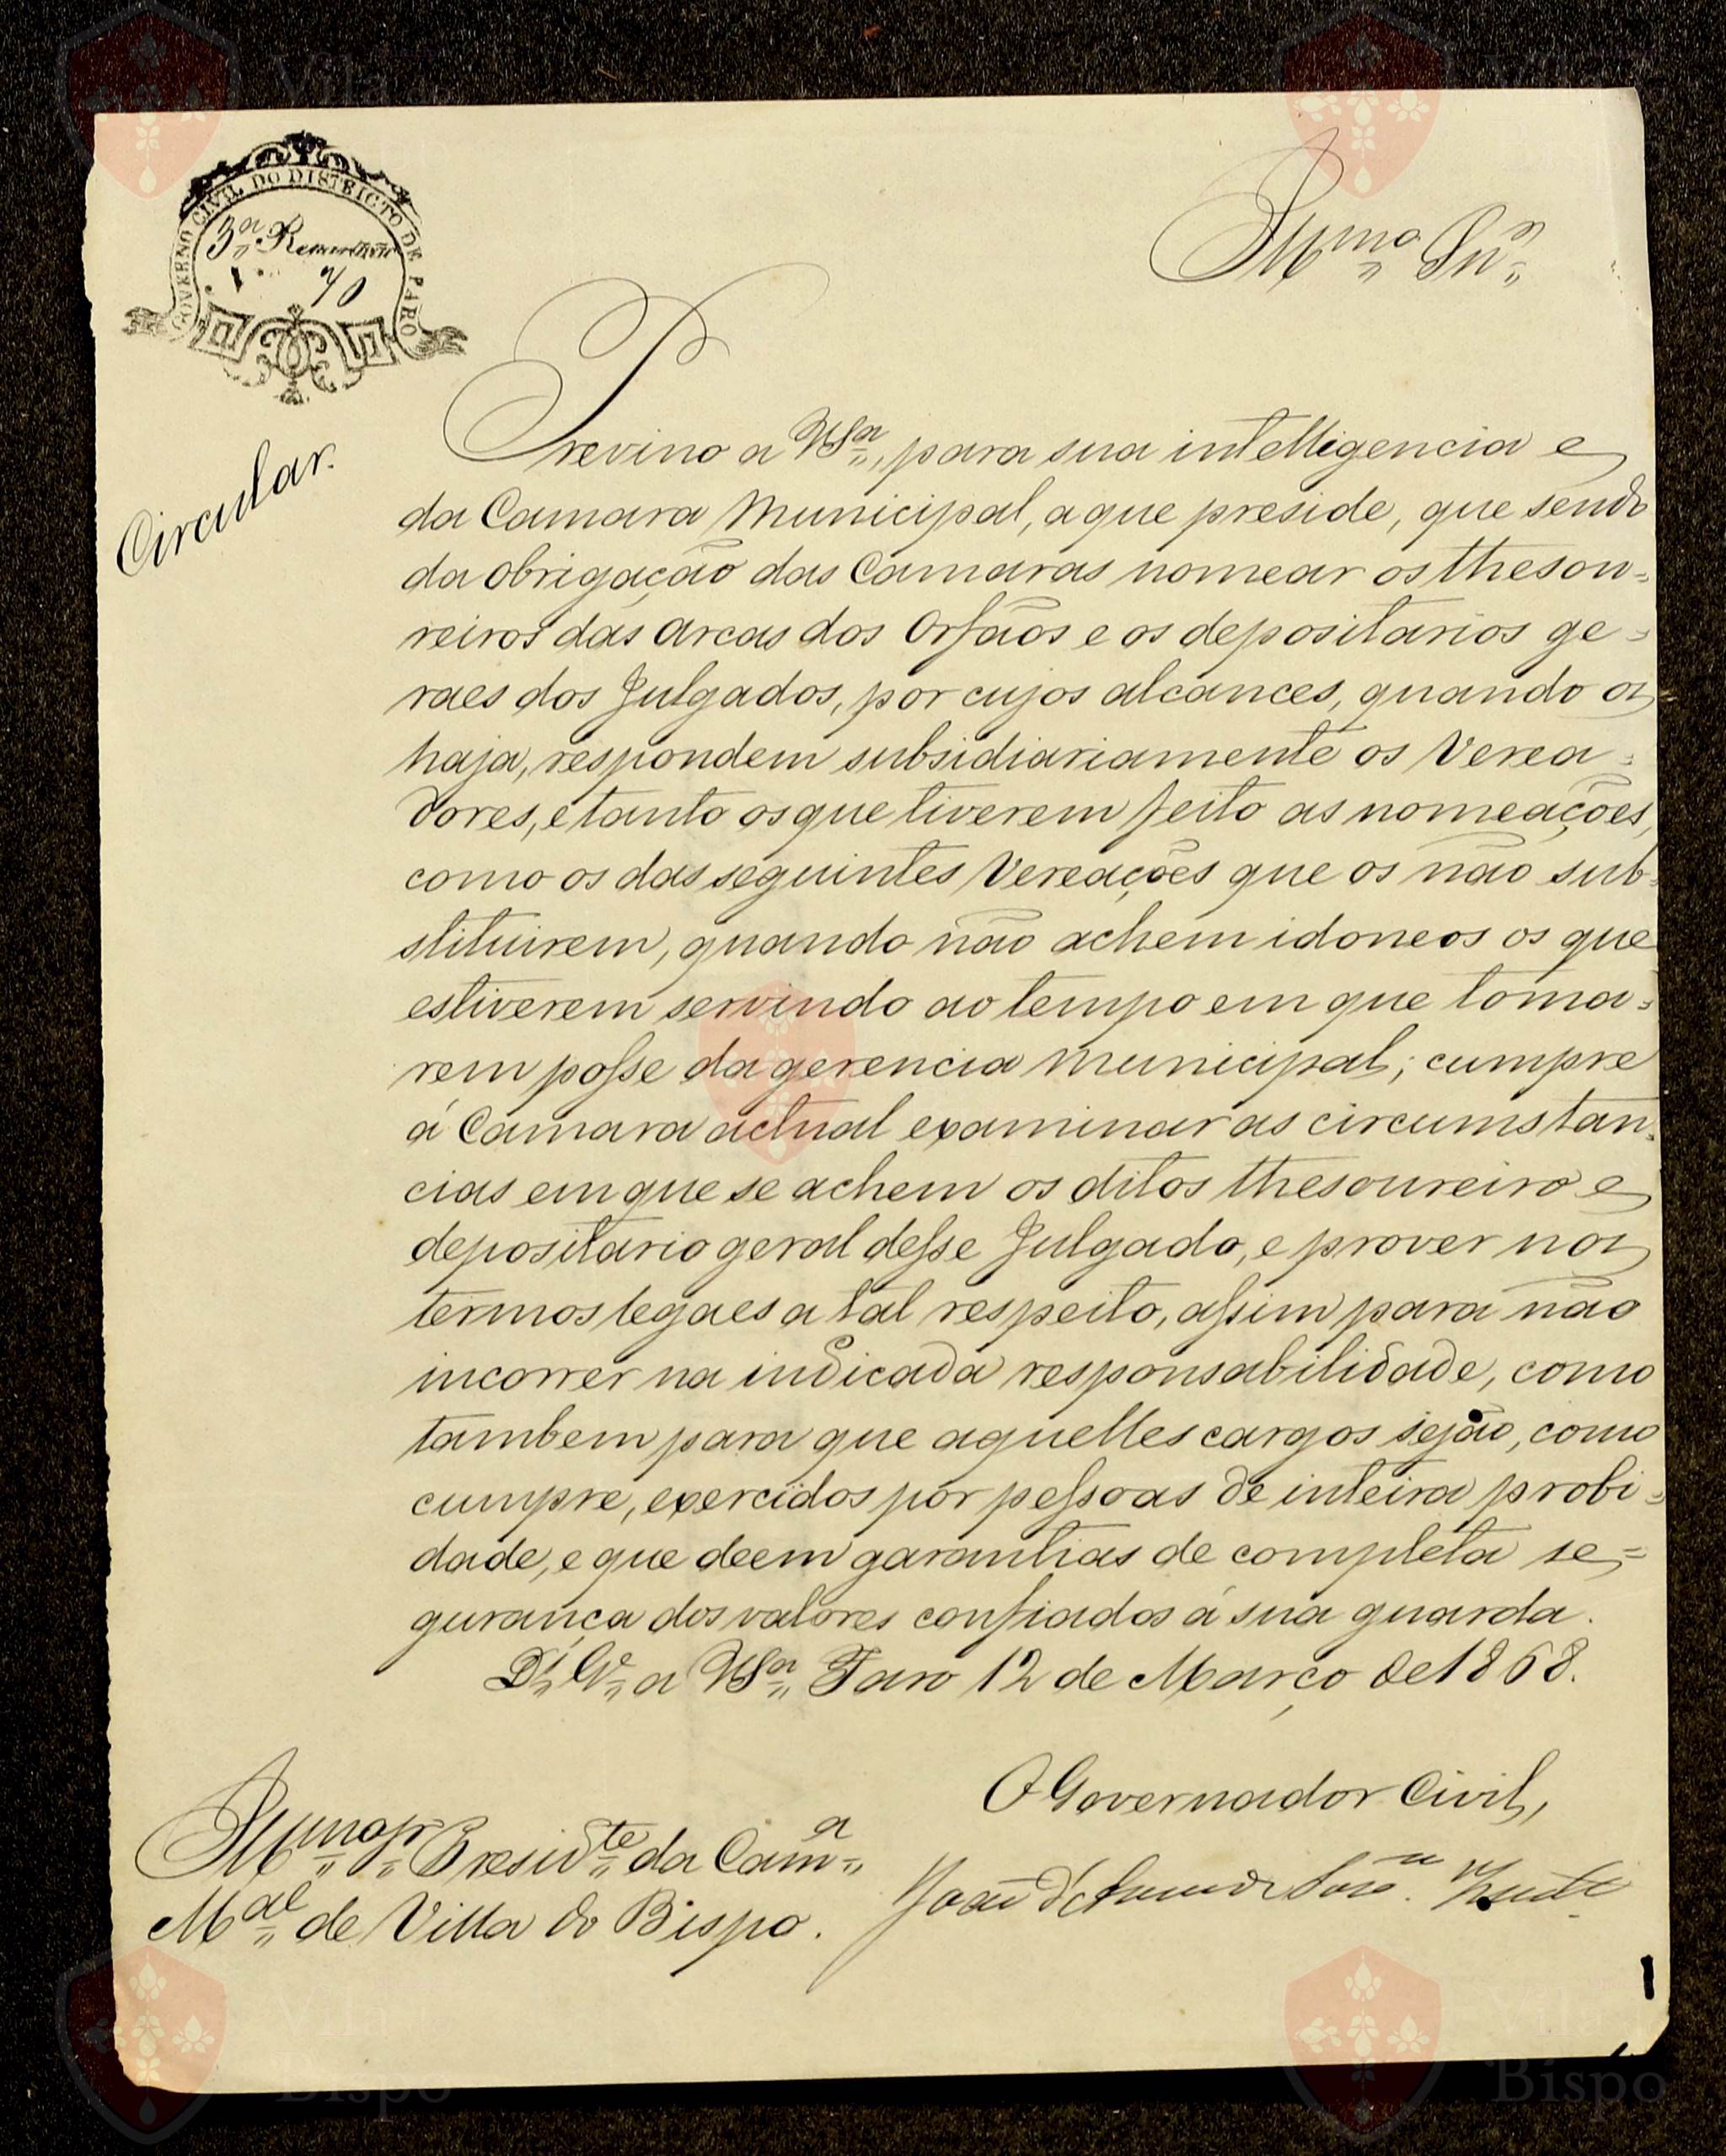 GOVERNO CIVIL DO DISTRICTO DE FARO
3ª
70
Illmo Snr
Circular.
Previno a VSª, para sua intelligencia e
da Camara Municipal, a que preside, que sendo
da obrigação das Camaras nomear os thesou=
reiros das arcas dos Orfãos e os depositarios ge=
raes dos Julgados, por cujos alcances, quando os
haja, respondem subsidiariamente os Verea=
dores, e tanto os que tiverem feito as nomeações,
como os das seguintes Vereações que os não sub=
stituirem, quando não achem idoneos os que
estiverem servindo ao tempo em que toma=
rem posse da gerencia Municipal; cumpre
á Camara actual examinar as circumstan=
cias em que se achem os ditos thesoureiro e
depositario geral desse Julgado, e prover nos
termos legaes a tal respeito, assim para não
incorrer na indicada responsabilidade, como
tambem para que aquelles cargos sejão, como
cumpre, exercidos por pessoas de inteira probi=
dade, e que deem garantias de completa se=
gurança dos valores confiados á sua guarda.
Ds Ge a VSª Faro 12 de Março de 1868.
O Governador Civil,
Illmo Sr Presidte da Camª
Mal de Villa do Bispo.
Vila do
Bispo